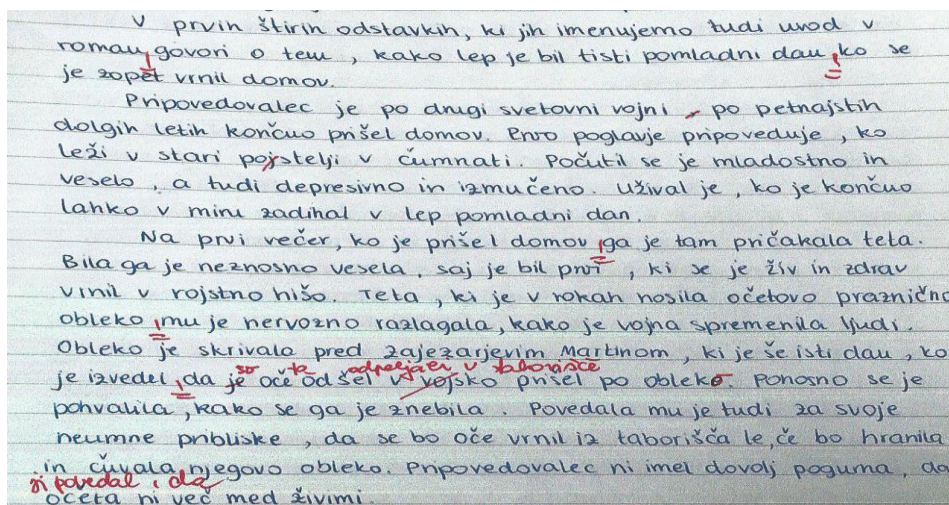 V prvih štirih odstavkih, ki jih imenujemo tudi uvod v
roman, govori o tem, kako lep je bil tisti pomladni dan, ko se
je zopet vrnil domov.
Pripovedovalec je po drugi svetovni vojni - po petnajstih
dolgih letih končno prišel domov. Prvo poglavje pripoveduje, ko
leži v stari pojstelji v čumnati. Počutil se je mladostno in
veselo, a tudi depresivno in izmučeno. Užival je, ko je končno
lahko v miru zadihal v lep pomladni dan.
Na prvi večer, ko je prišel domov, ga je tam pričakala teta.
Bila ga je neznosno vesela, saj je bil prvi, ki se je živ in zdrav
vrnil v rojstno hišo. Teta, ki je v rokah nosila očetovo praznično
obleko, mu je nervozno razlagala, kako je vojna spremenila ljudi.
Obleko je skrivala pred zajezarjevim Martinom, ki je še isti dan, ko
so odpeljali v taborišče
je izvedel, da je oče odšel v vojsko prišel po obleko. Ponosno se je
pohvalila, kako se ga je znebila. Povedala mu je tudi za svoje
neumne pribliske, da se bo oče vrnil iz taborišča le, če bo hranila
in čuvala njegovo obleko. Pripovedovalec ni imel dovolj poguma, da
ji povedal, da
očeta ni več med živimi.